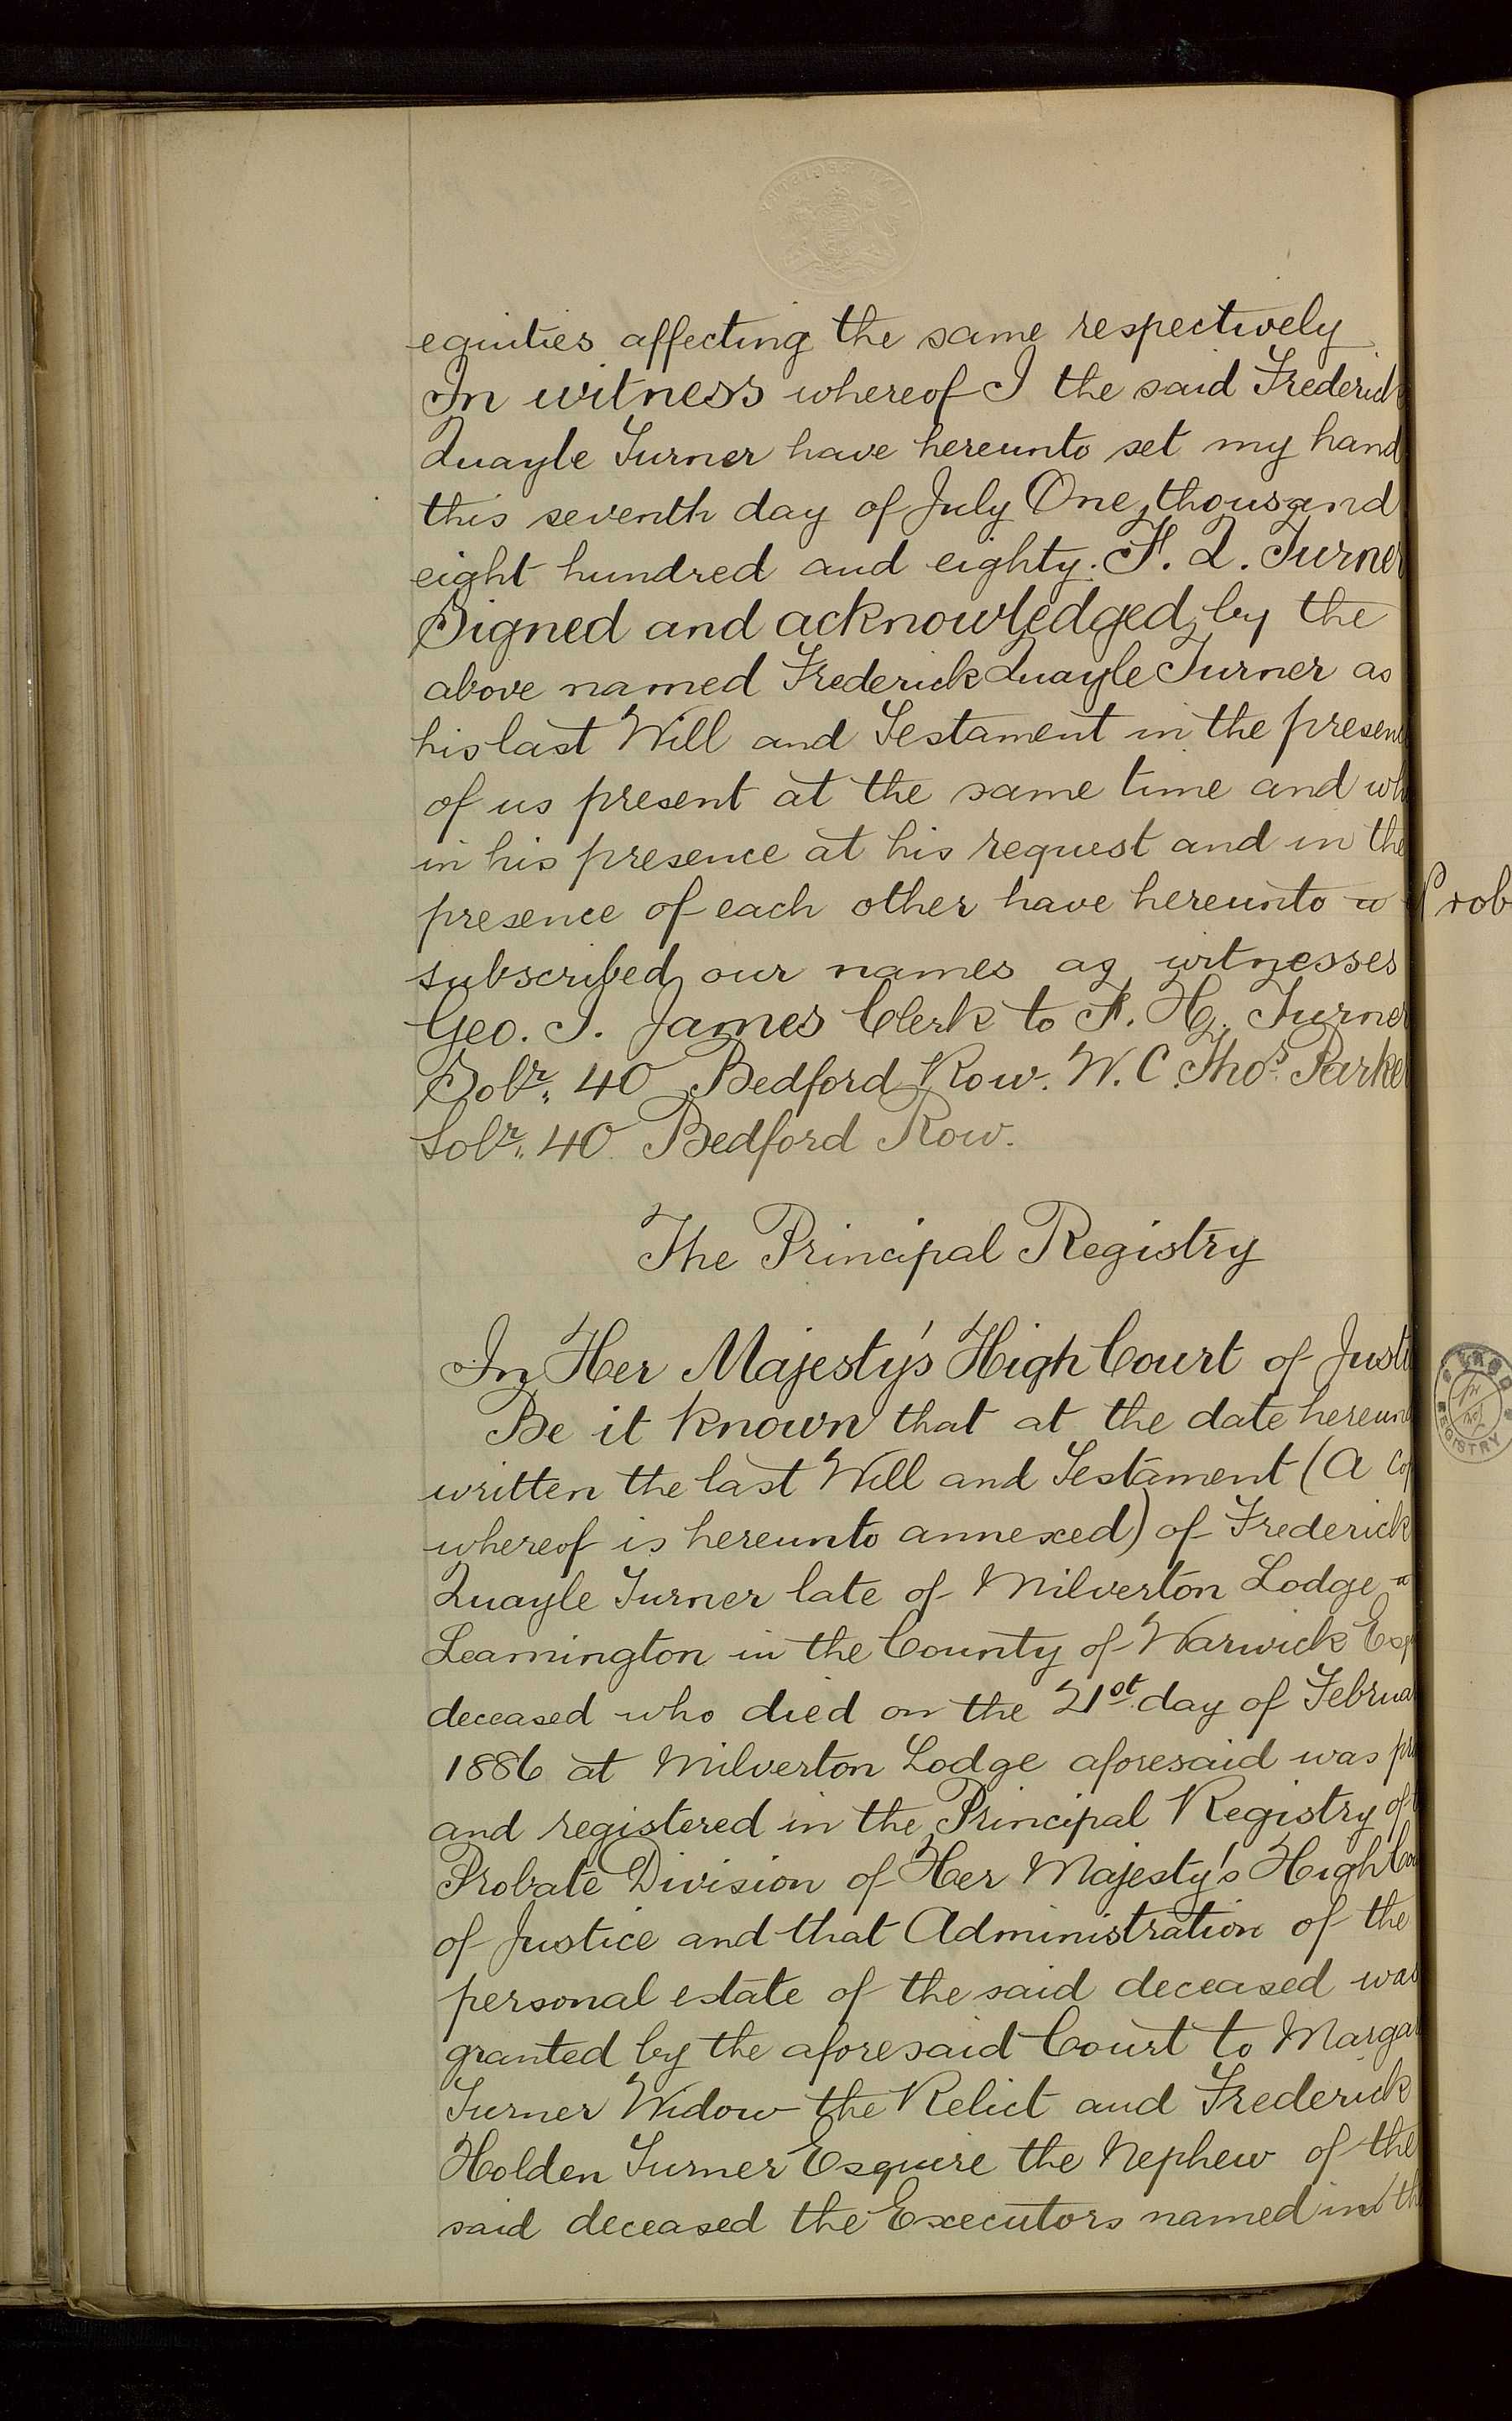 equities affecting the same respectively
In witness whereof I the said Frederick
Quayle Turner have hereunto set my hand
this seventh day of July One thousand
eight hundred and eighty. F. Q. Turner
Signed and acknowledged by the
above named Frederick Quayle Turner as
his last Will and Testament in the presen
of us present at the same time and wh
in his presence at his request and in the
presence of each other have hereunto
subscribed our names as witnesses
Geo. I. James Clerk to F. H. Turner
Solr. 40 Bedford Row. W. C. Thos. Parke
Solr. 40 Bedford Row.
The Principal Registry
In Her Majesty's High Court of Justi
Be it known that at the date hereun
written the last Will and Testament (a cop
whereof is hereunto annexed) of Frederick
Quayle Turner late of Milverton Lodge
Leamington in the County of Warwick Esq
deceased who died on the 21st day of Februa
1886 at Milverton Lodge aforesaid was pro
and registered in the Principal Registry of t
Probate Division of Her Majesty's High Cou
of Justice and that Administration of the
personal estate of the said deceased was
granted by the aforesaid Court to Margar
Turner Widow the Relict and Frederick
Holden Turner Esquire the Nephew of the
said deceased the Executors named in th
Prob
REGISTRY